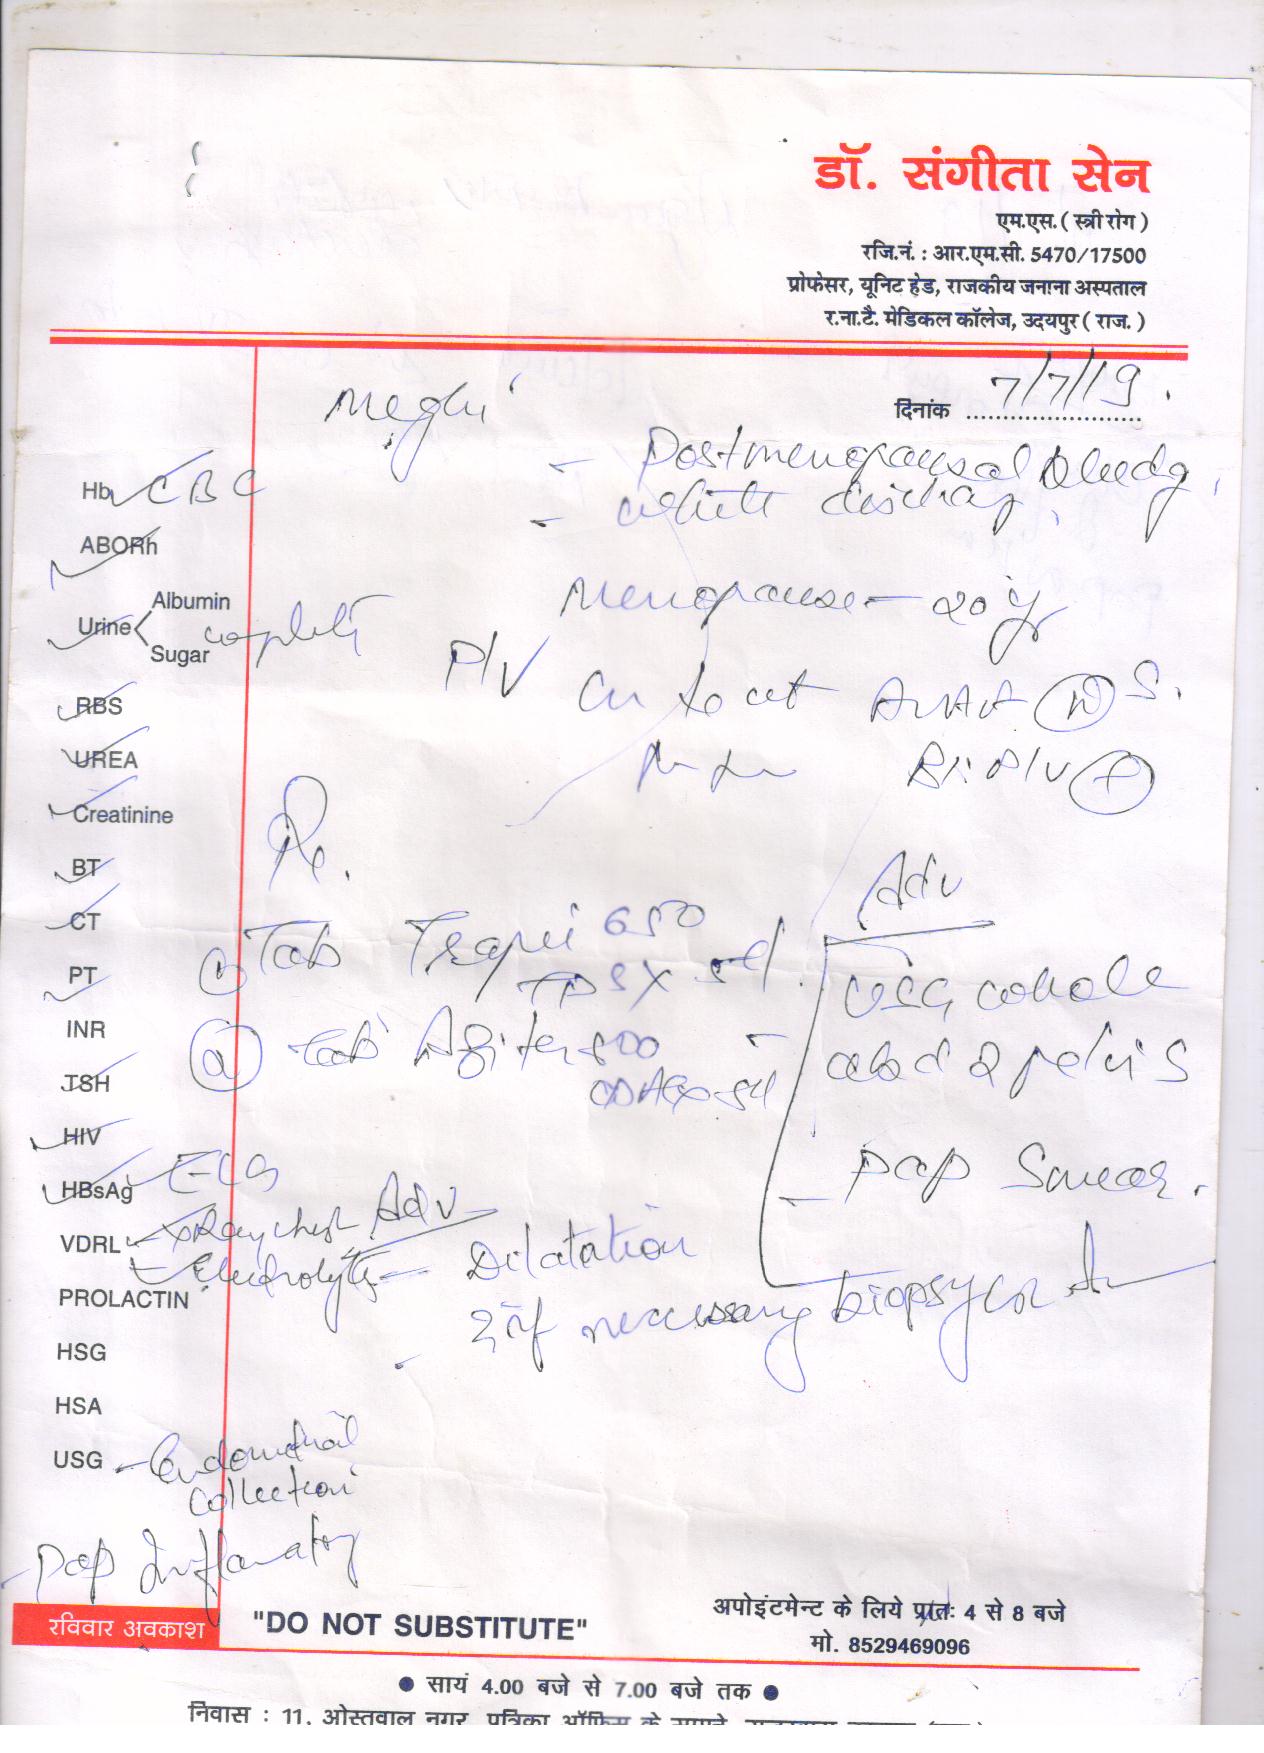 डॉ. संगीता सेन
एम.एस. ( स्त्री रोग )
रजि.नं. : आर.एम.सी. 5470/17500
प्रोफेसर, यूनिट हेड, राजकीय जनाना अस्पताल
र.ना.टै. मेडिकल कॉलेज, उदयपुर ( राज. )
दिनांक 7/7/19.
Meghi
- Postmenopausal bleedg,
- white discharg,
Menopause - 20 yr
P/V
Rx.
Adv
① Tab 650
TDS X 5d
② Tab 500
USG whole
abd & pelvis
- Pap Smear.
Adv
- Dilatation
& if necessary biopsy
Hb CBC
ABORh
Urine Albumin
Sugar
RBS
UREA
Creatinine
BT
CT
PT
INR
TSH
HIV
HBsAg ECG
VDRL X Ray chest
Electrolyte
PROLACTIN
HSG
HSA
USG - Endometrial
collection
Pap Inflamatory
रविवार अवकाश
"DO NOT SUBSTITUTE"
अपोइंटमेन्ट के लिये प्रातः 4 से 8 बजे
मो. 8529469096
● सायं 4.00 बजे से 7.00 बजे तक ●
निवास : 11, ओस्तवाल नगर, पत्रिका ऑफिस के सामने,